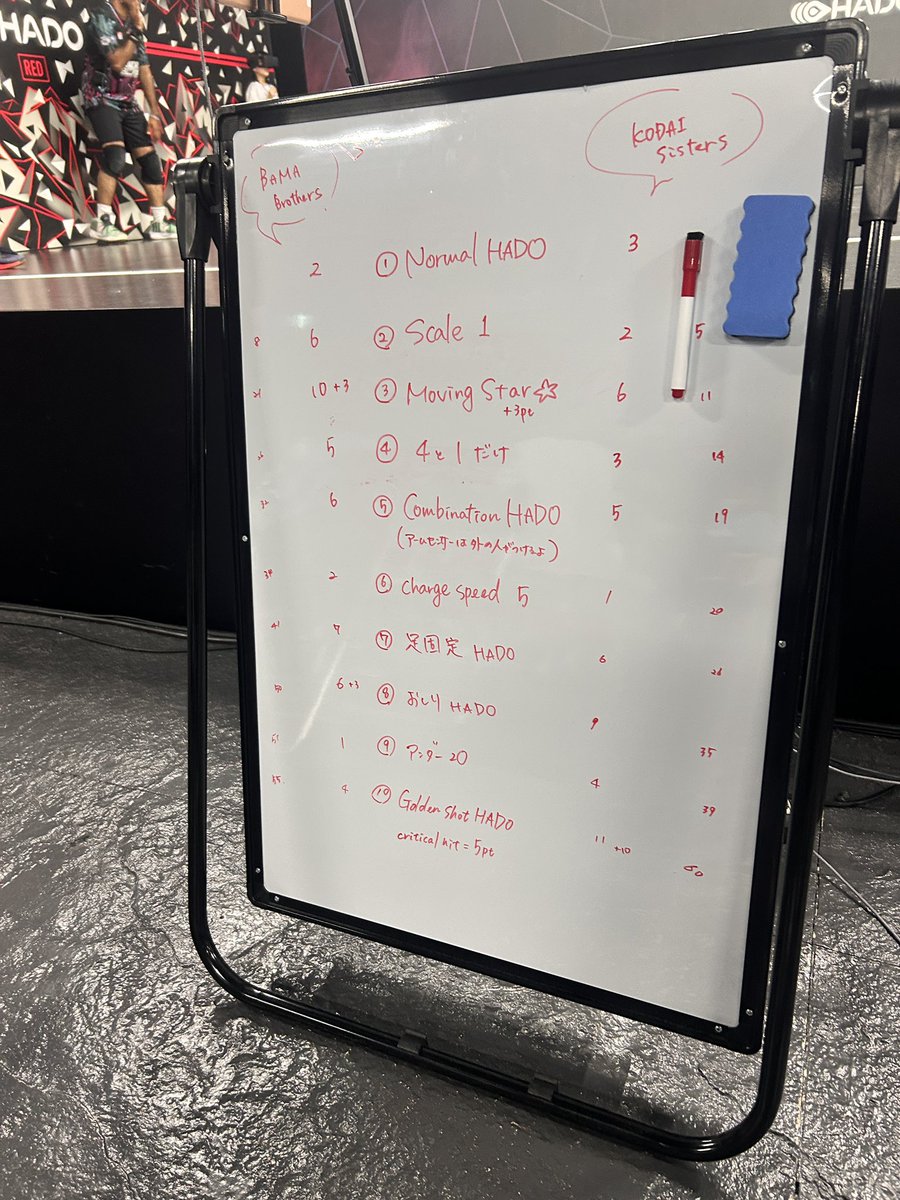 HADO
RED
HADO
BAMA
Brothers
KODAI
sisters
2 ① Normal HADO 3
8 6 ② Scale 1 2 5
21 10+3 ③ Moving Star☆ 6 11
+3pt
5 ④ 4と1だけ 3 14
32 6 ⑤ Combination HADO 5 19
(アームセンサーは外の人がつけるよ)
34 2 ⑥ Charge speed 5 1 20
41 7 ⑦ 足固定 HADO 6 26
50 6+3 ⑧ おしり HADO 9 35
51 1 ⑨ アンダー20 4 39
55 4 ⑩ Golden shot HADO 11 +10
critical hit = 5pt